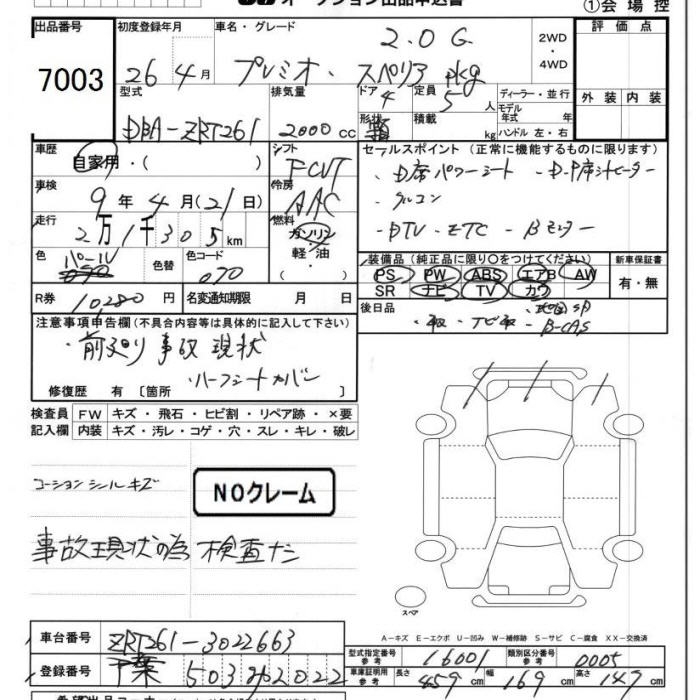 オークション出品申込書
①会場控
出品番号 初度登録年月 車名・グレード 評価点
7003
26 4月 プレミオ・スペリア pkg 2.0 G 2WD・4WD
型式 排気量 ドア 定員 ディーラー・並行 外装 内装
DBA-ZRT261 2000 CC 4 5 人 モデル年式 年
形状 積載 kg ハンドル 左・右
車歴 シフト セールスポイント(正常に機能するものに限ります)
自家用・( ) FCVT ・D席パワーシート ・D.P席シートヒーター
車検 冷房 ・クルコン
9年4月(21日) AAC ・DTV ・ETC ・Bモニター
走行 燃料
2万1千305km ガソリン・軽・油・( )
色 色替 色コード 装備品(純正品に限り○をつけてください) 新車保証書
パール 070 070 PS PW ABS エアB AW 有・無
SR ナビ TV カワ
R券 10280円 名変通知期限 月 日 後日品
・取・ナビ取・地図SD
・B-CAS
注意事項申告欄(不具合内容等は具体的に記入して下さい)
・前廻り事故現状
・ハーフシートカバー
修復歴 有 〔箇所 〕
検査員 FW キズ・飛石・ヒビ割・リペア跡・×要
記入欄 内装 キズ・汚レ・コゲ・穴・スレ・キレ・破レ
コーションシールキズ
NOクレーム
事故現状の為 検査ナシ
スペア
A-キズ E-エクボ U-凹み W-補修跡 S-サビ C-腐食 XX-交換済
車台番号 ZRT261-3022663
型式指定番号 参考 16001 類別区分番号 参考 0005
登録番号 千葉 503 2022
車庫証明用 参考 長さ 459cm 幅 169cm 高さ 147cm